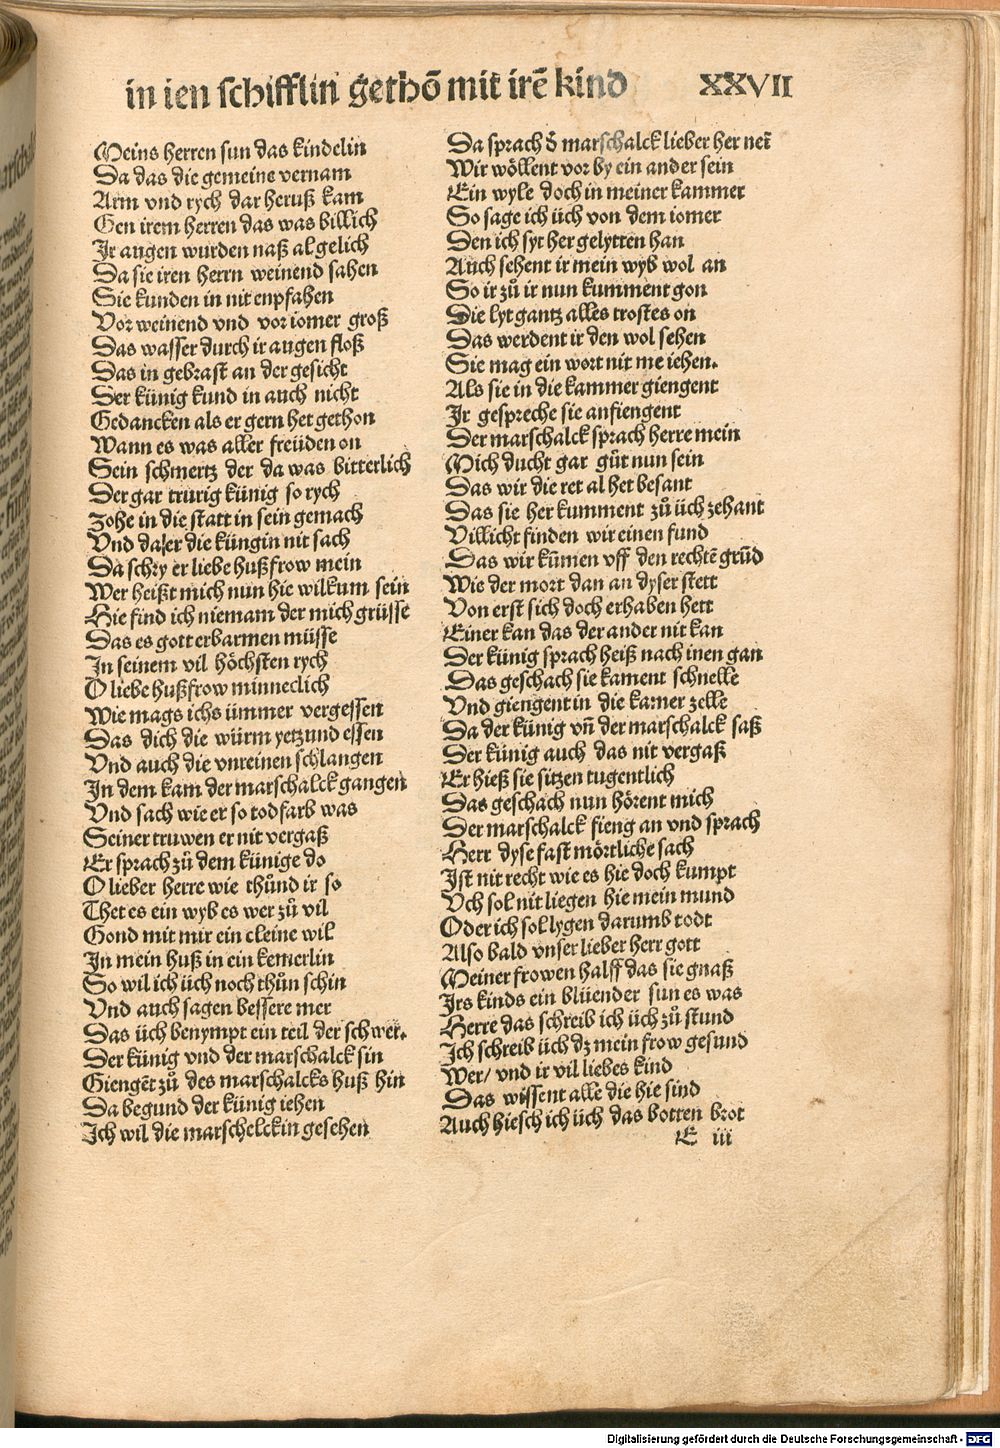 in ien schifflin gethō mit irē kind XXVII
Meins herren sun das kindelin
Da das die gemeine vernam
Arm vnd rych dar heruß kam
Gen irem herren das was billich
Ir augen wurden naß al gelich
Da sie iren herrn weinend sahen
Sie kunden in nit enpfahen
Vor weinend vnd vor iomer groß
Das wasser durch ir augen floß
Das in gebrast an der gesicht
Der künig kund in auch nicht
Gedancken als er gern het gethon
Wann es was aller freüden on
Sein schmertz der da was bitterlich
Der gar trurig künig so rych
Zohe in die statt in sein gemach
Vnd da er die küngin nit sach
Da schry er liebe hußfrow mein
Wer heißt mich nun hie wilkum sein
Hie find ich niemam der mich grüsse
Das es gott erbarmen müsse
In seinem vil höchsten rych
O liebe hußfrow minneclich
Wie mags ichs ümmer vergessen
Das dich die würm yetzund essen
Vnd auch die vnreinen schlangen
In dem kam der marschalck gangen
Vnd sach wie er so todfarb was
Seiner truwen er nit vergaß
Er sprach zů dem künige do
O lieber herre wie thůnd ir so
Thet es ein wyb es wer zů vil
Gond mit mir ein cleine wil
In mein huß in ein kemerlin
So wil ich üch noch thůn schin
Vnd auch sagen bessere mer
Das üch benympt ein teil der schwer.
Der künig vnd der marschalck sin
Giengēt zů des marschalcks huß hin
Da begund der künig iehen
Ich wil die marschelckin gesehen
Da sprach ð marschalck lieber her neī
Wir wöllent vor by ein ander sein
Ein wyle doch in meiner kammer
So sage ich üch von dem iomer
Den ich syt her gelytten han
Auch sehent ir mein wyb wol an
So ir zů ir nun kumment gon
Die lyt gantz alles trostes on
Das werdent ir den wol sehen
Sie mag ein wort nit me iehen.
Als sie in die kammer giengent
Ir gespreche sie anfiengent
Der marschalck sprach herre mein
Mich ducht gar gůt nun sein
Das wir die ret al het besant
Das sie her kumment zů üch zehant
Villicht finden wir einen fund
Das wir kūmen vff den rechtē grūd
Wie der mort dan an dyser stett
Von erst sich doch erhaben hett
Einer kan das der ander nit kan
Der künig sprach heiß nach inen gan
Das geschach sie kament schnelle
Vnd giengent in die kamer zelle
Da der künig vñ der marschalck saß
Der künig auch das nit vergaß
Er hieß sie sitzen tugentlich
Das geschach nun hörent mich
Der marschalck fieng an vnd sprach
Herr dyse fast mörtliche sach
Ist nit recht wie es hie doch kumpt
Vch sol nit liegen hie mein mund
Oder ich sol lygen darumb todt
Also bald vnser lieber herr gott
Meiner frowen halff das sie gnaß
Irs kinds ein blüender sun es was
Herre das schreib ich üch zů stund
Ich schreib üch dz mein frow gesund
Wer/ vnd ir vil liebes kind
Das wissent alle die hie sind
Auch hiesch ich üch das botten brot
E iii
Digitalisierung gefördert durch die Deutsche Forschungsgemeinschaft - DFG